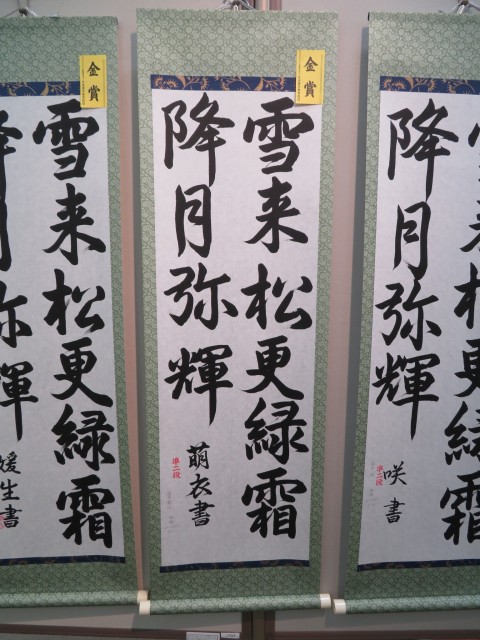 雪来松更緑霜
降月弥輝
咲書
準二段
金賞
雪来松更緑霜
降月弥輝
萌衣書
準二段
金賞
雪来松更緑霜
降月弥輝
媛生書